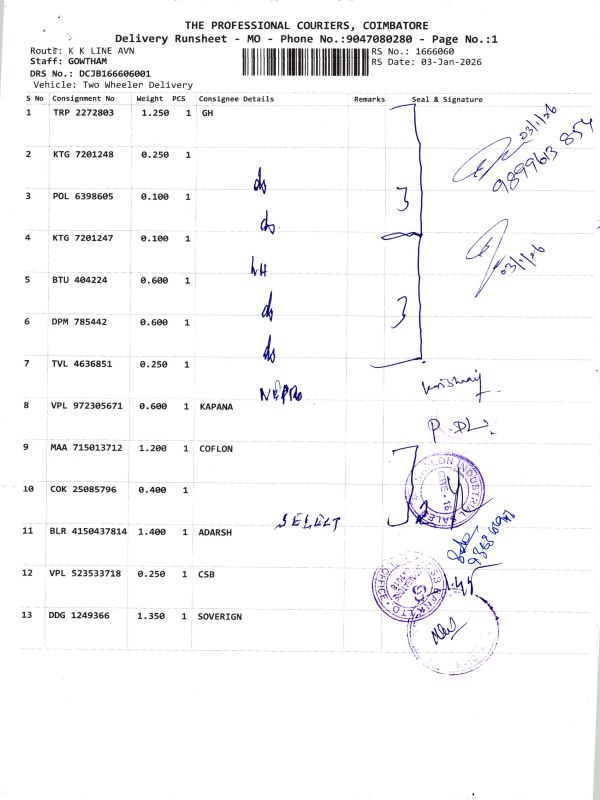 THE PROFESSIONAL COURIERS, COIMBATORE
Delivery Runsheet - MO - Phone No.:9047080280 - Page No.:1
Route: K K LINE AVN
RS No.: 1666060
Staff: GOWTHAM
RS Date: 03-Jan-2026
DRS No.: DCJB166606001
Vehicle: Two Wheeler Delivery
S No Consignment No Weight PCS Consignee Details Remarks Seal & Signature
1 TRP 2272803 1.250 1 GH
03/1/26
2 KTG 7201248 0.250 1
do
3 POL 6398605 0.100 1
3
do
4 KTG 7201247 0.100 1
03/1/26
5 BTU 404224 0.600 1
do
3
6 DPM 785442 0.600 1
do
7 TVL 4636851 0.250 1
8 VPL 972305671 0.600 1 KAPANA
9 MAA 715013712 1.200 1 COFLON
10 COK 25085796 0.400 1
SELECT
11 BLR 4150437814 1.400 1 ADARSH
12 VPL 523533718 0.250 1 CSB
1.45
13 DDG 1249366 1.350 1 SOVERIGN